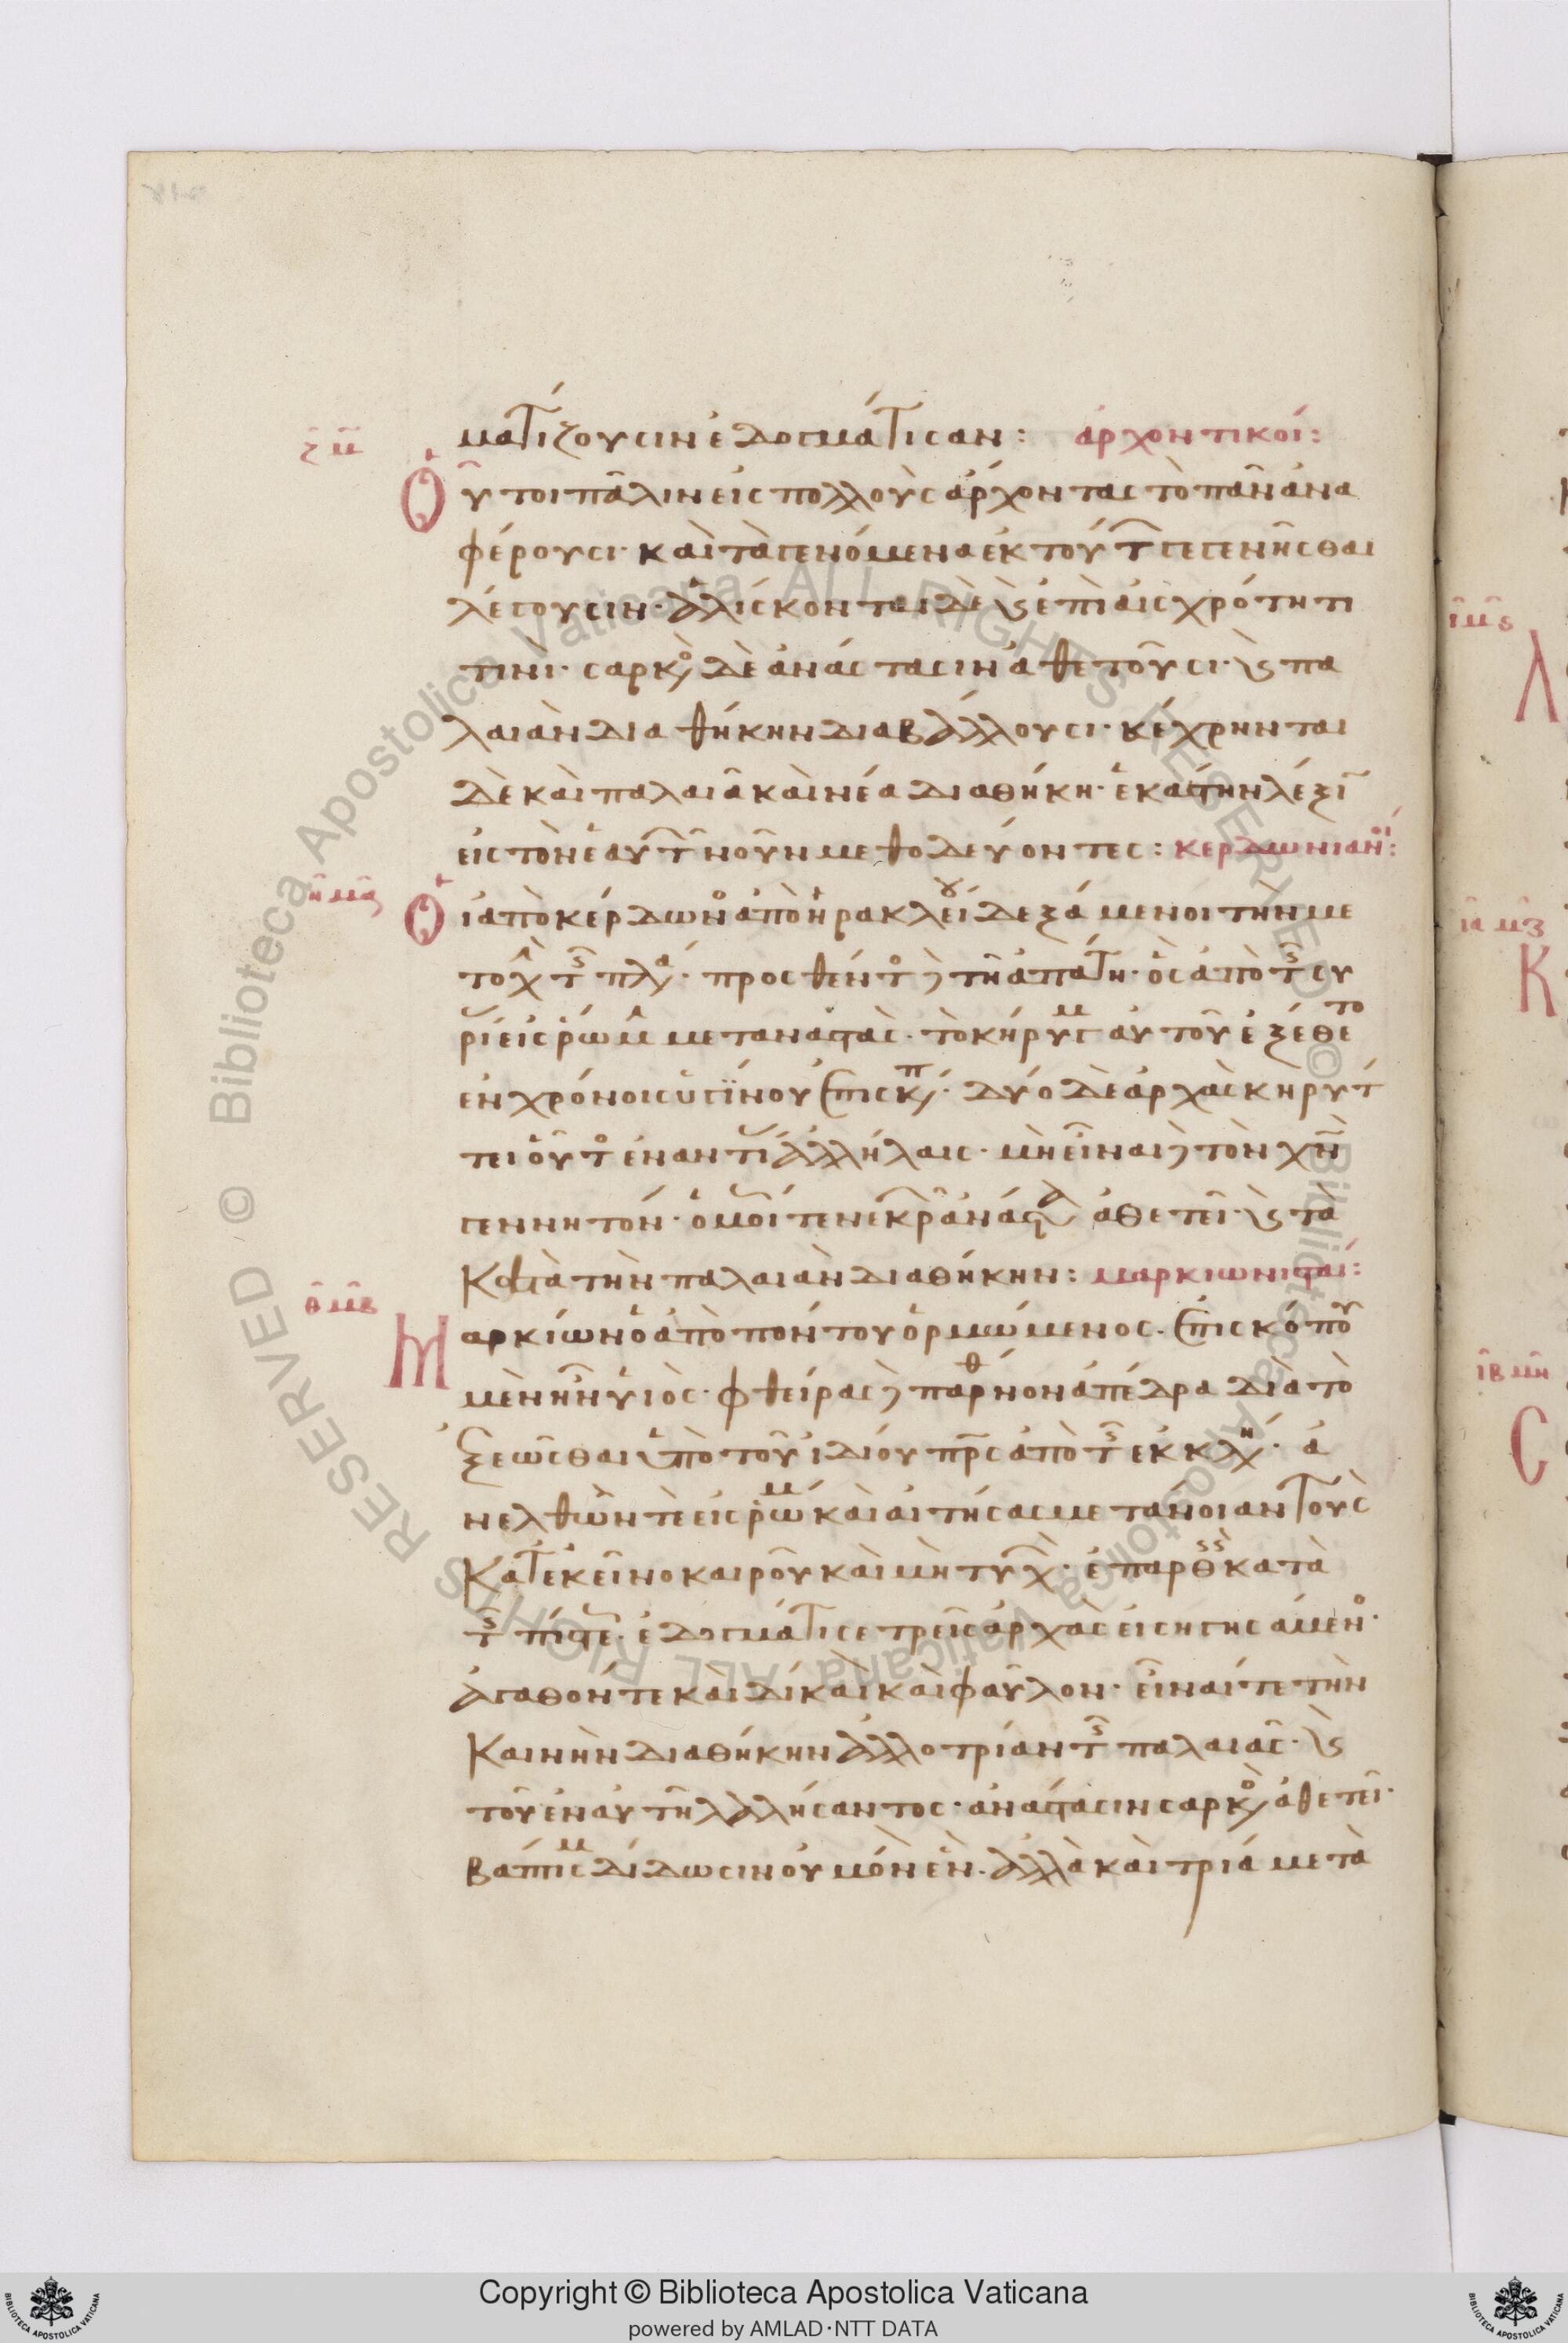 ζ μ
ματίζουσιν ἐδογμάτισαν: ἀρχοντικοί:
Οὗτοι πάλιν εἰς πολλοὺς ἄρχοντας τὸ πᾶν ἀνα
φέρουσι· καὶ τὰ γενόμενα ἐκ τούτ γεγενῆσθαι
λέγουσιν· ἁλίσκονται δὲ ϗ ἐπὶ αἰσχρότητι
τινί· σαρκὸ δὲ ἀνάστασιν ἀθετοῦσι· ϗ πα
λαιὰν διαθήκην διαβάλλουσι· κέχρηνται
δὲ καὶ παλαιᾶ καὶ νέα διαθήκη· ἑκάστην λέξι
εἰς τὸν ἑαυτ νοῦν μεθοδεύοντες: κερδωνιαν:
η μα
Οἱ ἀπὸ κέρδωνο ἀπὸ ἡρακλεί δεξάμενοι τὴν με
τοχ τ πλα· προσθέντο τῆ ἀπάτη· ὃς ἀπὸ τ συ
ρί εἰς ῥώμ μεταναστὰς· τὸ κήρυγμ αὐτοῦ ἐξέθετο
ἐν χρόνοις ὑγίνου ἐπισκπ· δύο δὲ ἀρχὰς κηρύτ
τει οὗτο ἐναντί ἀλλήλαις· μὴ εἶναι τὸν χν
γεννητόν· ὁμοί τε νεκρ ἀνάστα ἀθετεῖ· ϗ τὰ
κατὰ τὴν παλαιὰν διαθήκην: μαρκιωνισταί:
θ μβ
Μαρκίων ὁ ἀπὸ πόντου ὁρμώμενος. ἐπισκόπου
μὲν ἦν ὑιὸς· φθείρας παρθνον ἀπέδρα διὰ τὸ
ἐξεῶσθαι ὑπὸ τοῦ ἰδίου πρς ἀπὸ τ ἐκκλη· ἀ
νελθὼν τὲ εἰς ῥώμ καὶ αἰτήσας μετάνοιαν τοὺς
κατ ἐκεῖνο καιροῦ καὶ μὴ τυχ· ἐπαρθ κατὰ
τ πίστε· ἐδογμάτισε τρεῖς ἀρχὰς εἰσηγησάμενο·
ἀγαθόν τε καὶ δίκαι καὶ φαῦλον· εἶναί τε τὴν
καινὴν διαθήκην ἀλλοτρίαν τ παλαιᾶς· ϗ
τοῦ ἐν αὐτῆ λαλήσαντος· ἀνάστασιν σαρκὸ ἀθετεῖ·
βάπτισμ δίδωσιν οὐ μόν ἓν. ἀλλὰ καὶ τρία μετὰ
ι μς
Λ
ια μζ
Κ
ιβ μη
C
Copyright © Biblioteca Apostolica Vaticana
powered by AMLAD·NTT DATA